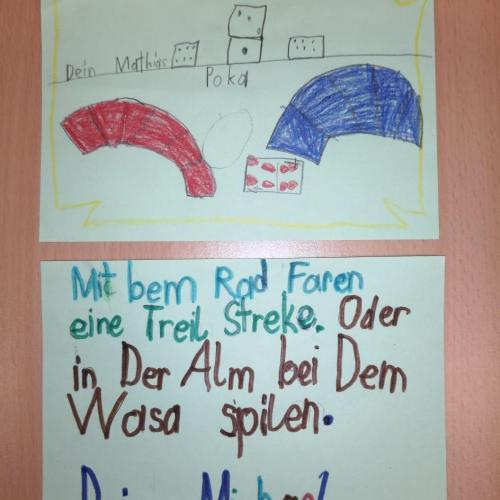 Dein Mathias
Poka
Mit bem Rad Faren
eine Treil Streke. Oder
in Der Alm bei Dem
Wasa spilen.